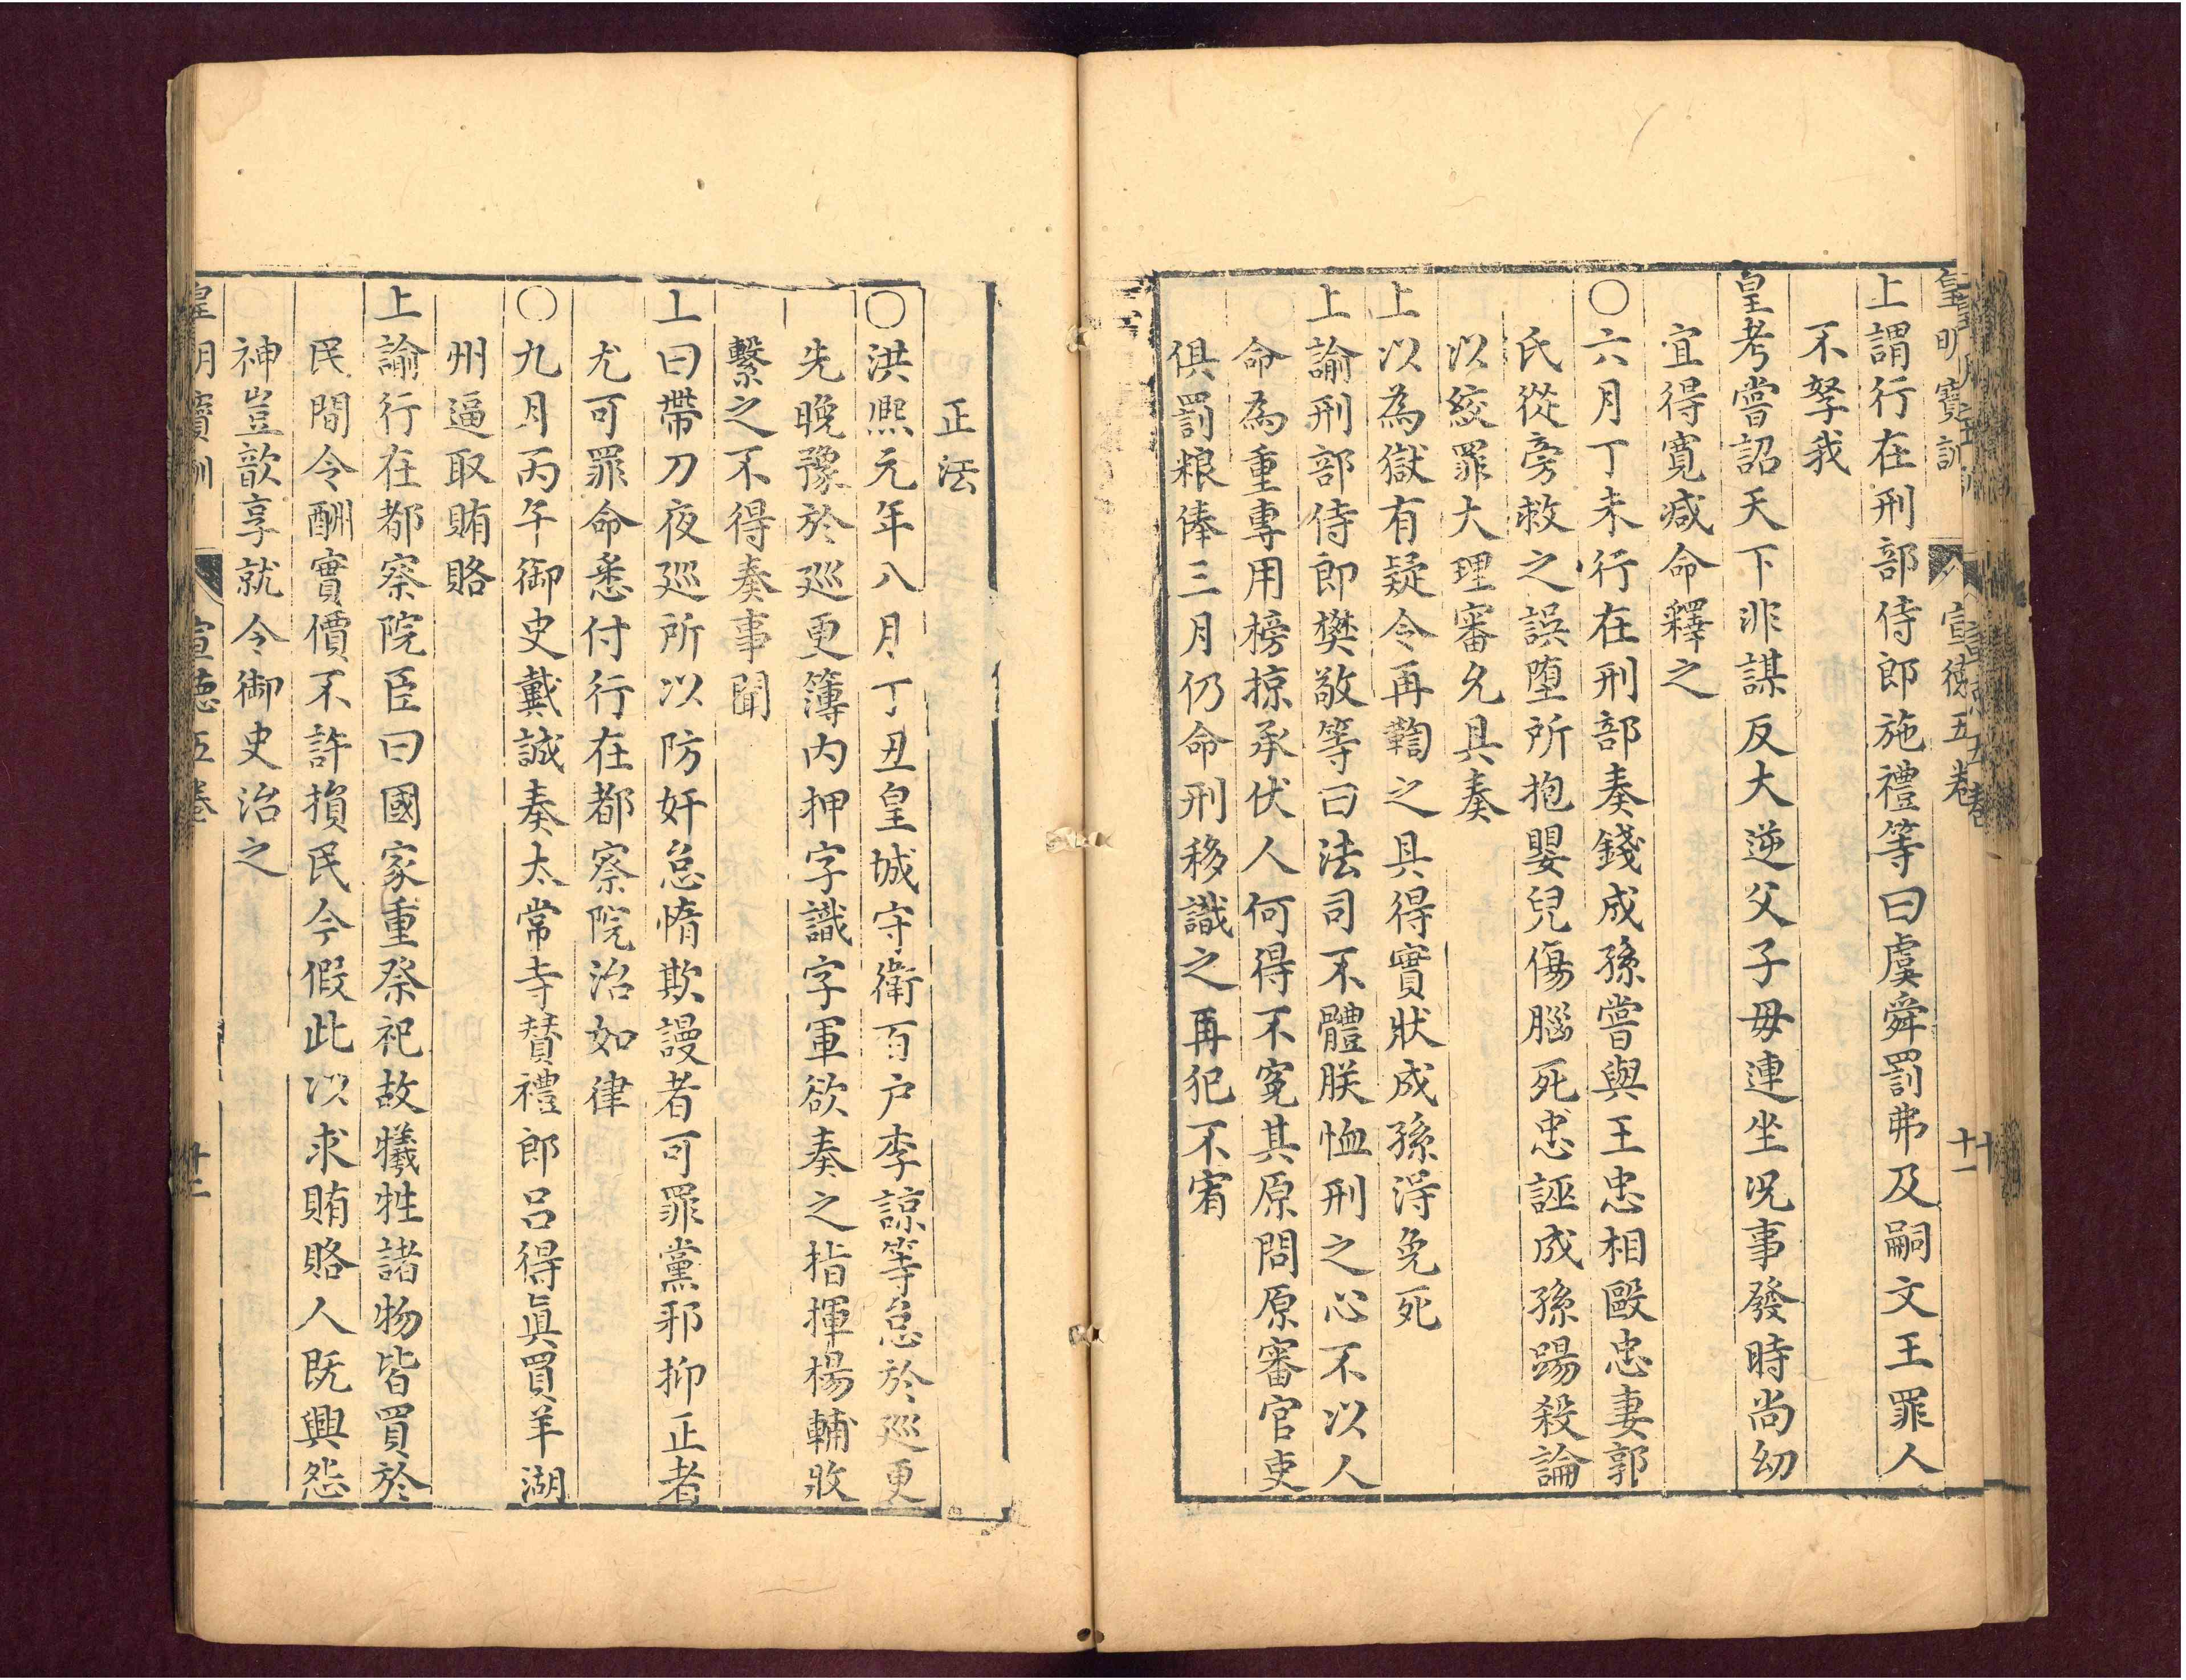 皇明寶訓 宣德五卷 十一
上謂行在刑部侍郎施禮等曰虞舜罰弗及嗣文王罪人
不孥我
皇考嘗詔天下非謀反大逆父子毋連坐况事發時尚幼
宜得寬减命釋之
〇六月丁未行在刑部奏錢成孫嘗與王忠相毆忠妻郭
氏從旁救之誤堕所抱嬰兒傷腦死忠誣成孫踢殺論
以絞罪大理審允具奏
上以為獄有疑令再鞫之具得實狀成孫得免死
上諭刑部侍郎樊敬等曰法司不體朕恤刑之心不以人
命為重專用榜掠承伏人何得不冤其原問原審官吏
俱罰粮俸三月仍命刑移識之再犯不宥
正法
〇洪熈元年八月丁丑皇城守衛百户李諒等怠於巡更
先晚豫於巡更簿内押字識字軍欲奏之指揮楊輔收
繫之不得奏事聞
上曰帶刀夜巡所以防奸怠惰欺謾者可罪黨邪抑正者
尤可罪命悉付行在都察院治如律
〇九月丙午御史戴誠奏太常寺賛禮郎吕得真買羊湖
州逼取賄賂
上諭行在都察院臣曰國家重祭祀故犠牲諸物皆買於
民間令酬實價不許損民今假此以求賄賂人既興怨
神豈歆享就令御史治之
皇明寶訓 宣德五卷 十二